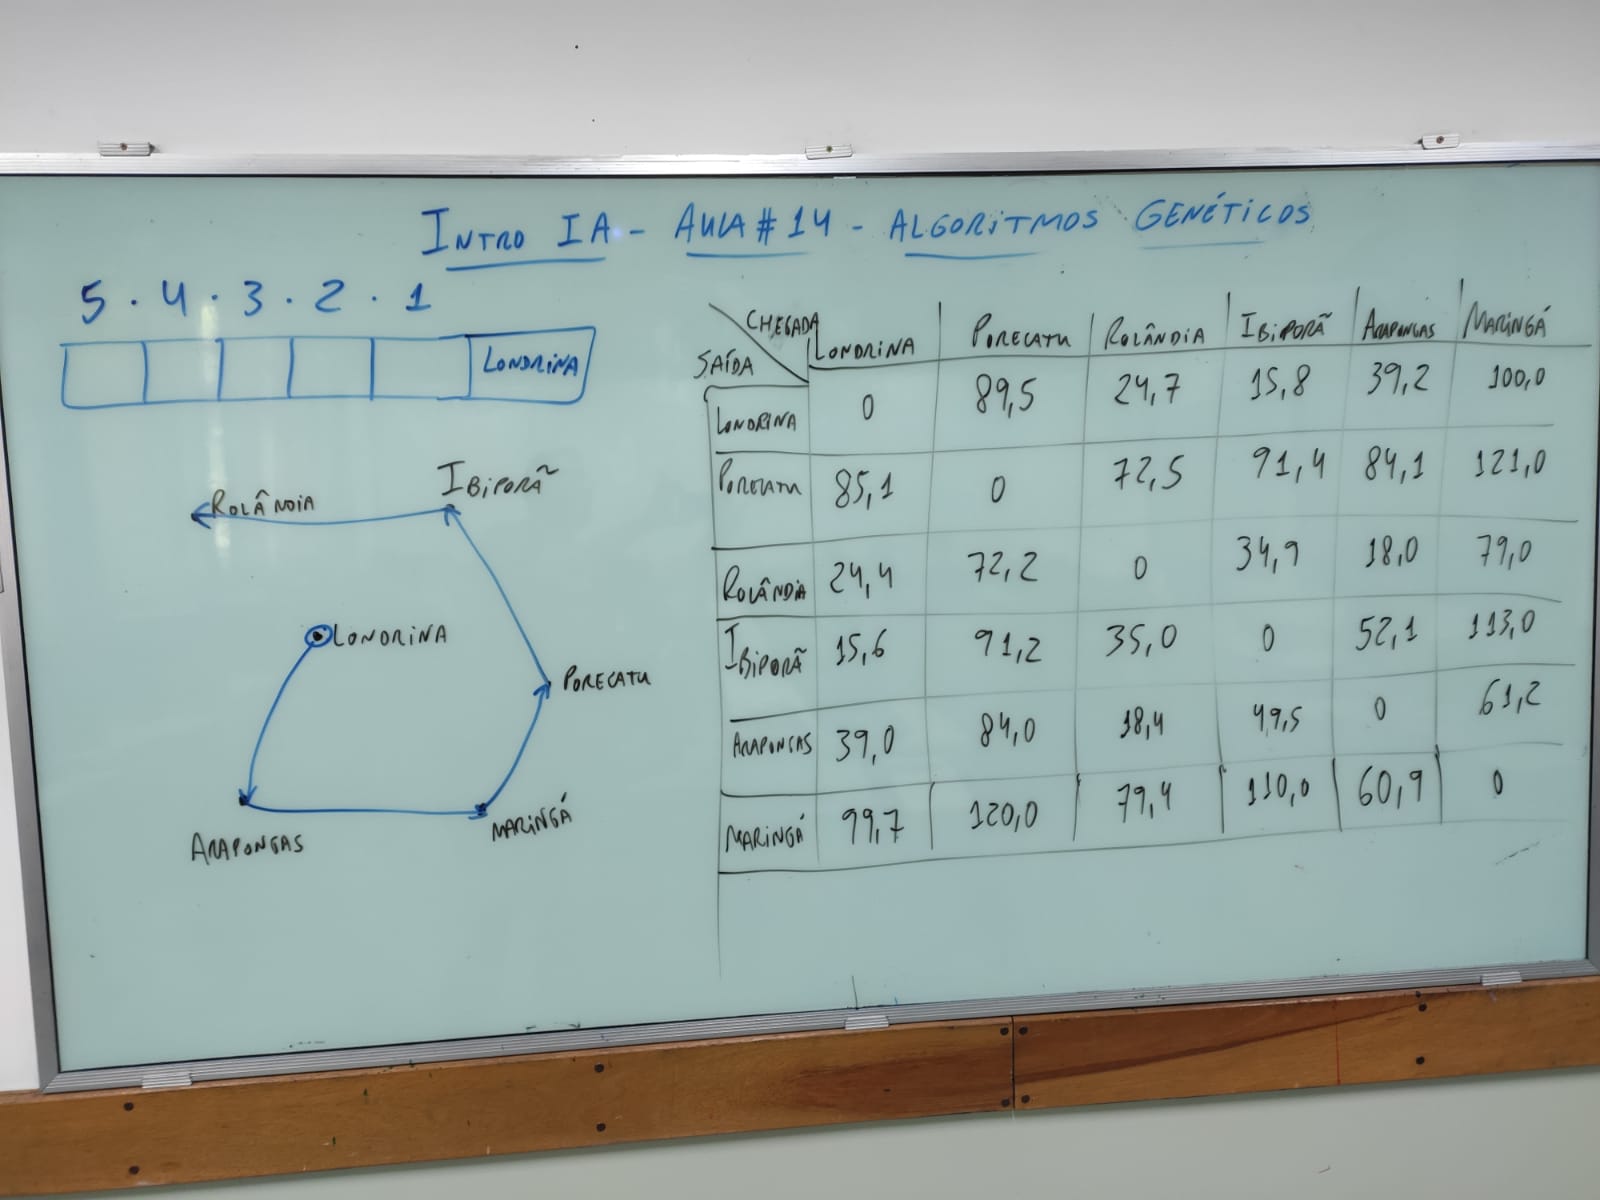 INTRO IA - AULA #14 - ALGORITMOS GENÉTICOS
5 . 4 . 3 . 2 . 1
LONDRINA
ROLÂNDIA
IBIPORÃ
LONDRINA
PORECATU
ARAPONGAS
MARINGÁ
CHEGADA
SAÍDA
LONDRINA PORECATU ROLÂNDIA IBIPORÃ ARAPONGAS MARINGÁ
LONDRINA 0 89,5 24,7 15,8 39,2 100,0
PORECATU 85,1 0 72,5 91,4 84,1 121,0
ROLÂNDIA 24,4 72,2 0 34,9 18,0 79,0
IBIPORÃ 15,6 91,2 35,0 0 52,1 113,0
ARAPONGAS 39,0 84,0 18,4 49,5 0 61,2
MARINGÁ 99,7 120,0 79,4 110,0 60,9 0